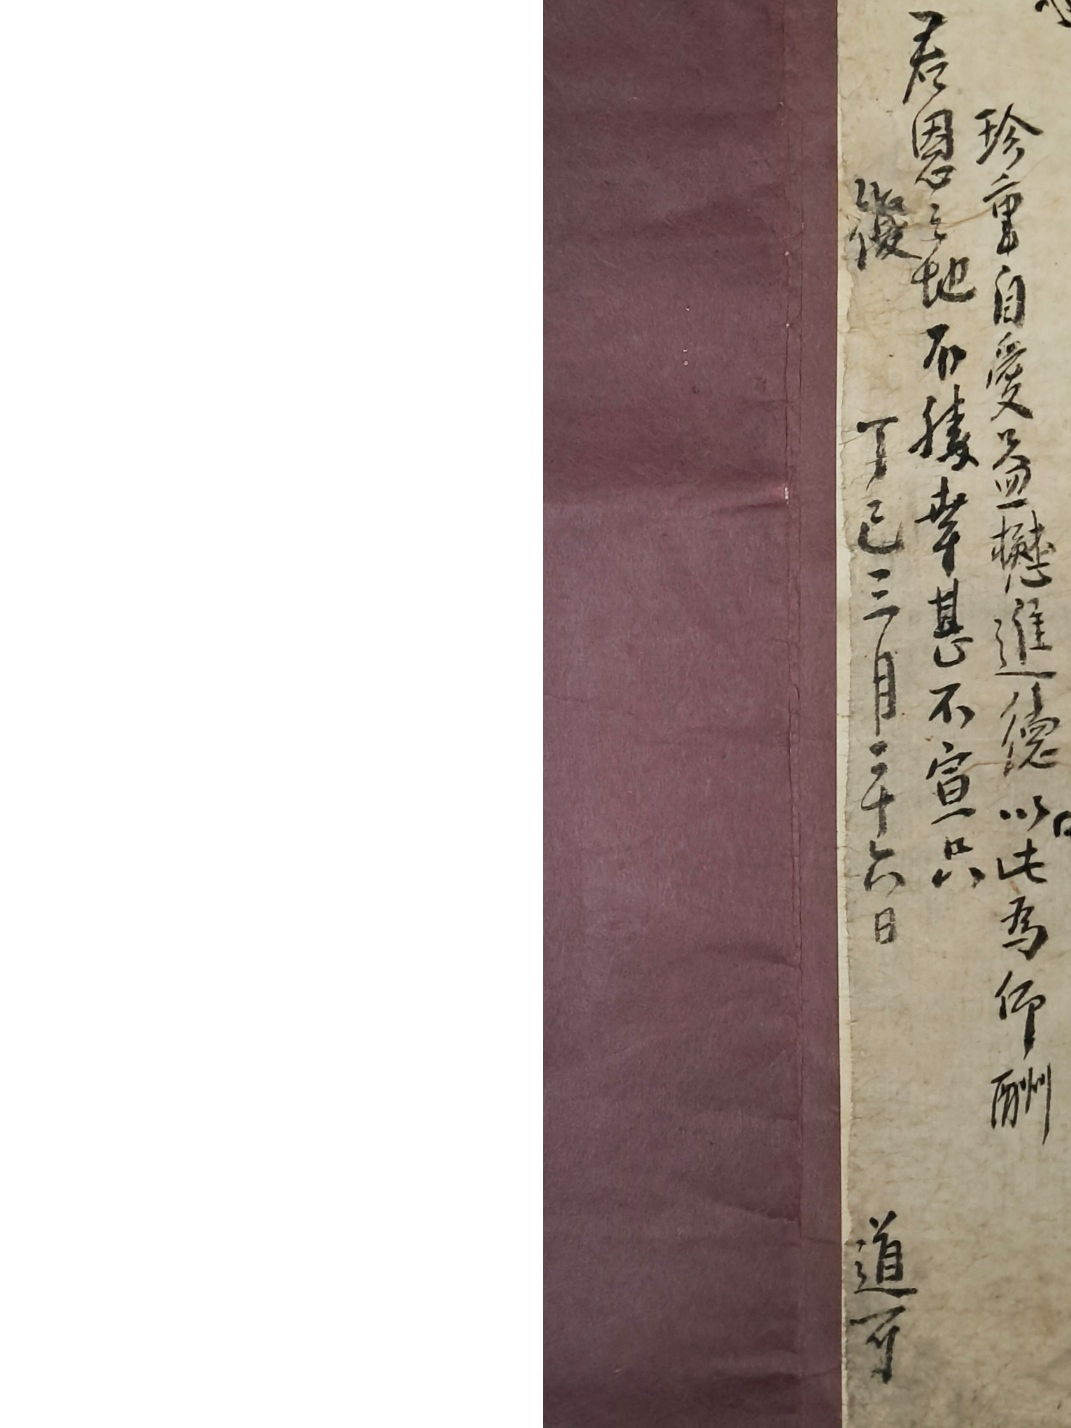 珍重自愛益懋進德以此為仰酬
君恩之地不勝幸甚不宣只
後 丁巳三月二十六日 道可